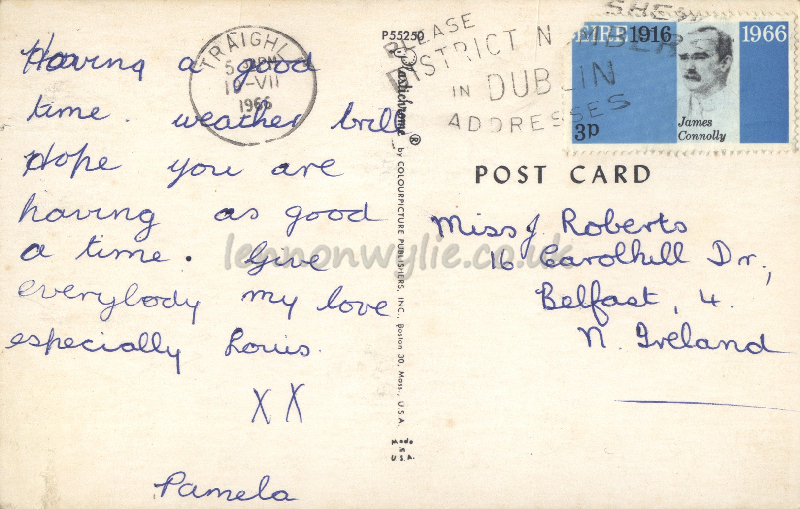 Having a good
time. weather brill
Hope you are
having as good
a time. Give
everybody my love
especially Louis.
X X
Pamela
TRAIGHLÍ
1966
P55250
Plastichrome ® by COLOURPICTURE PUBLISHERS, INC., Boston 30, Mass., U.S.A.
Made
in
U.S.A.
PLEASE SHEW
DISTRICT NUMBER
IN DUBLIN
ADDRESSES
EIRE 1916 1966
James
Connolly
3p
POST CARD
Miss J. Roberts
16 Carolhill Dr.,
Belfast, 4.
N. Ireland
lennonwylie.co.uk